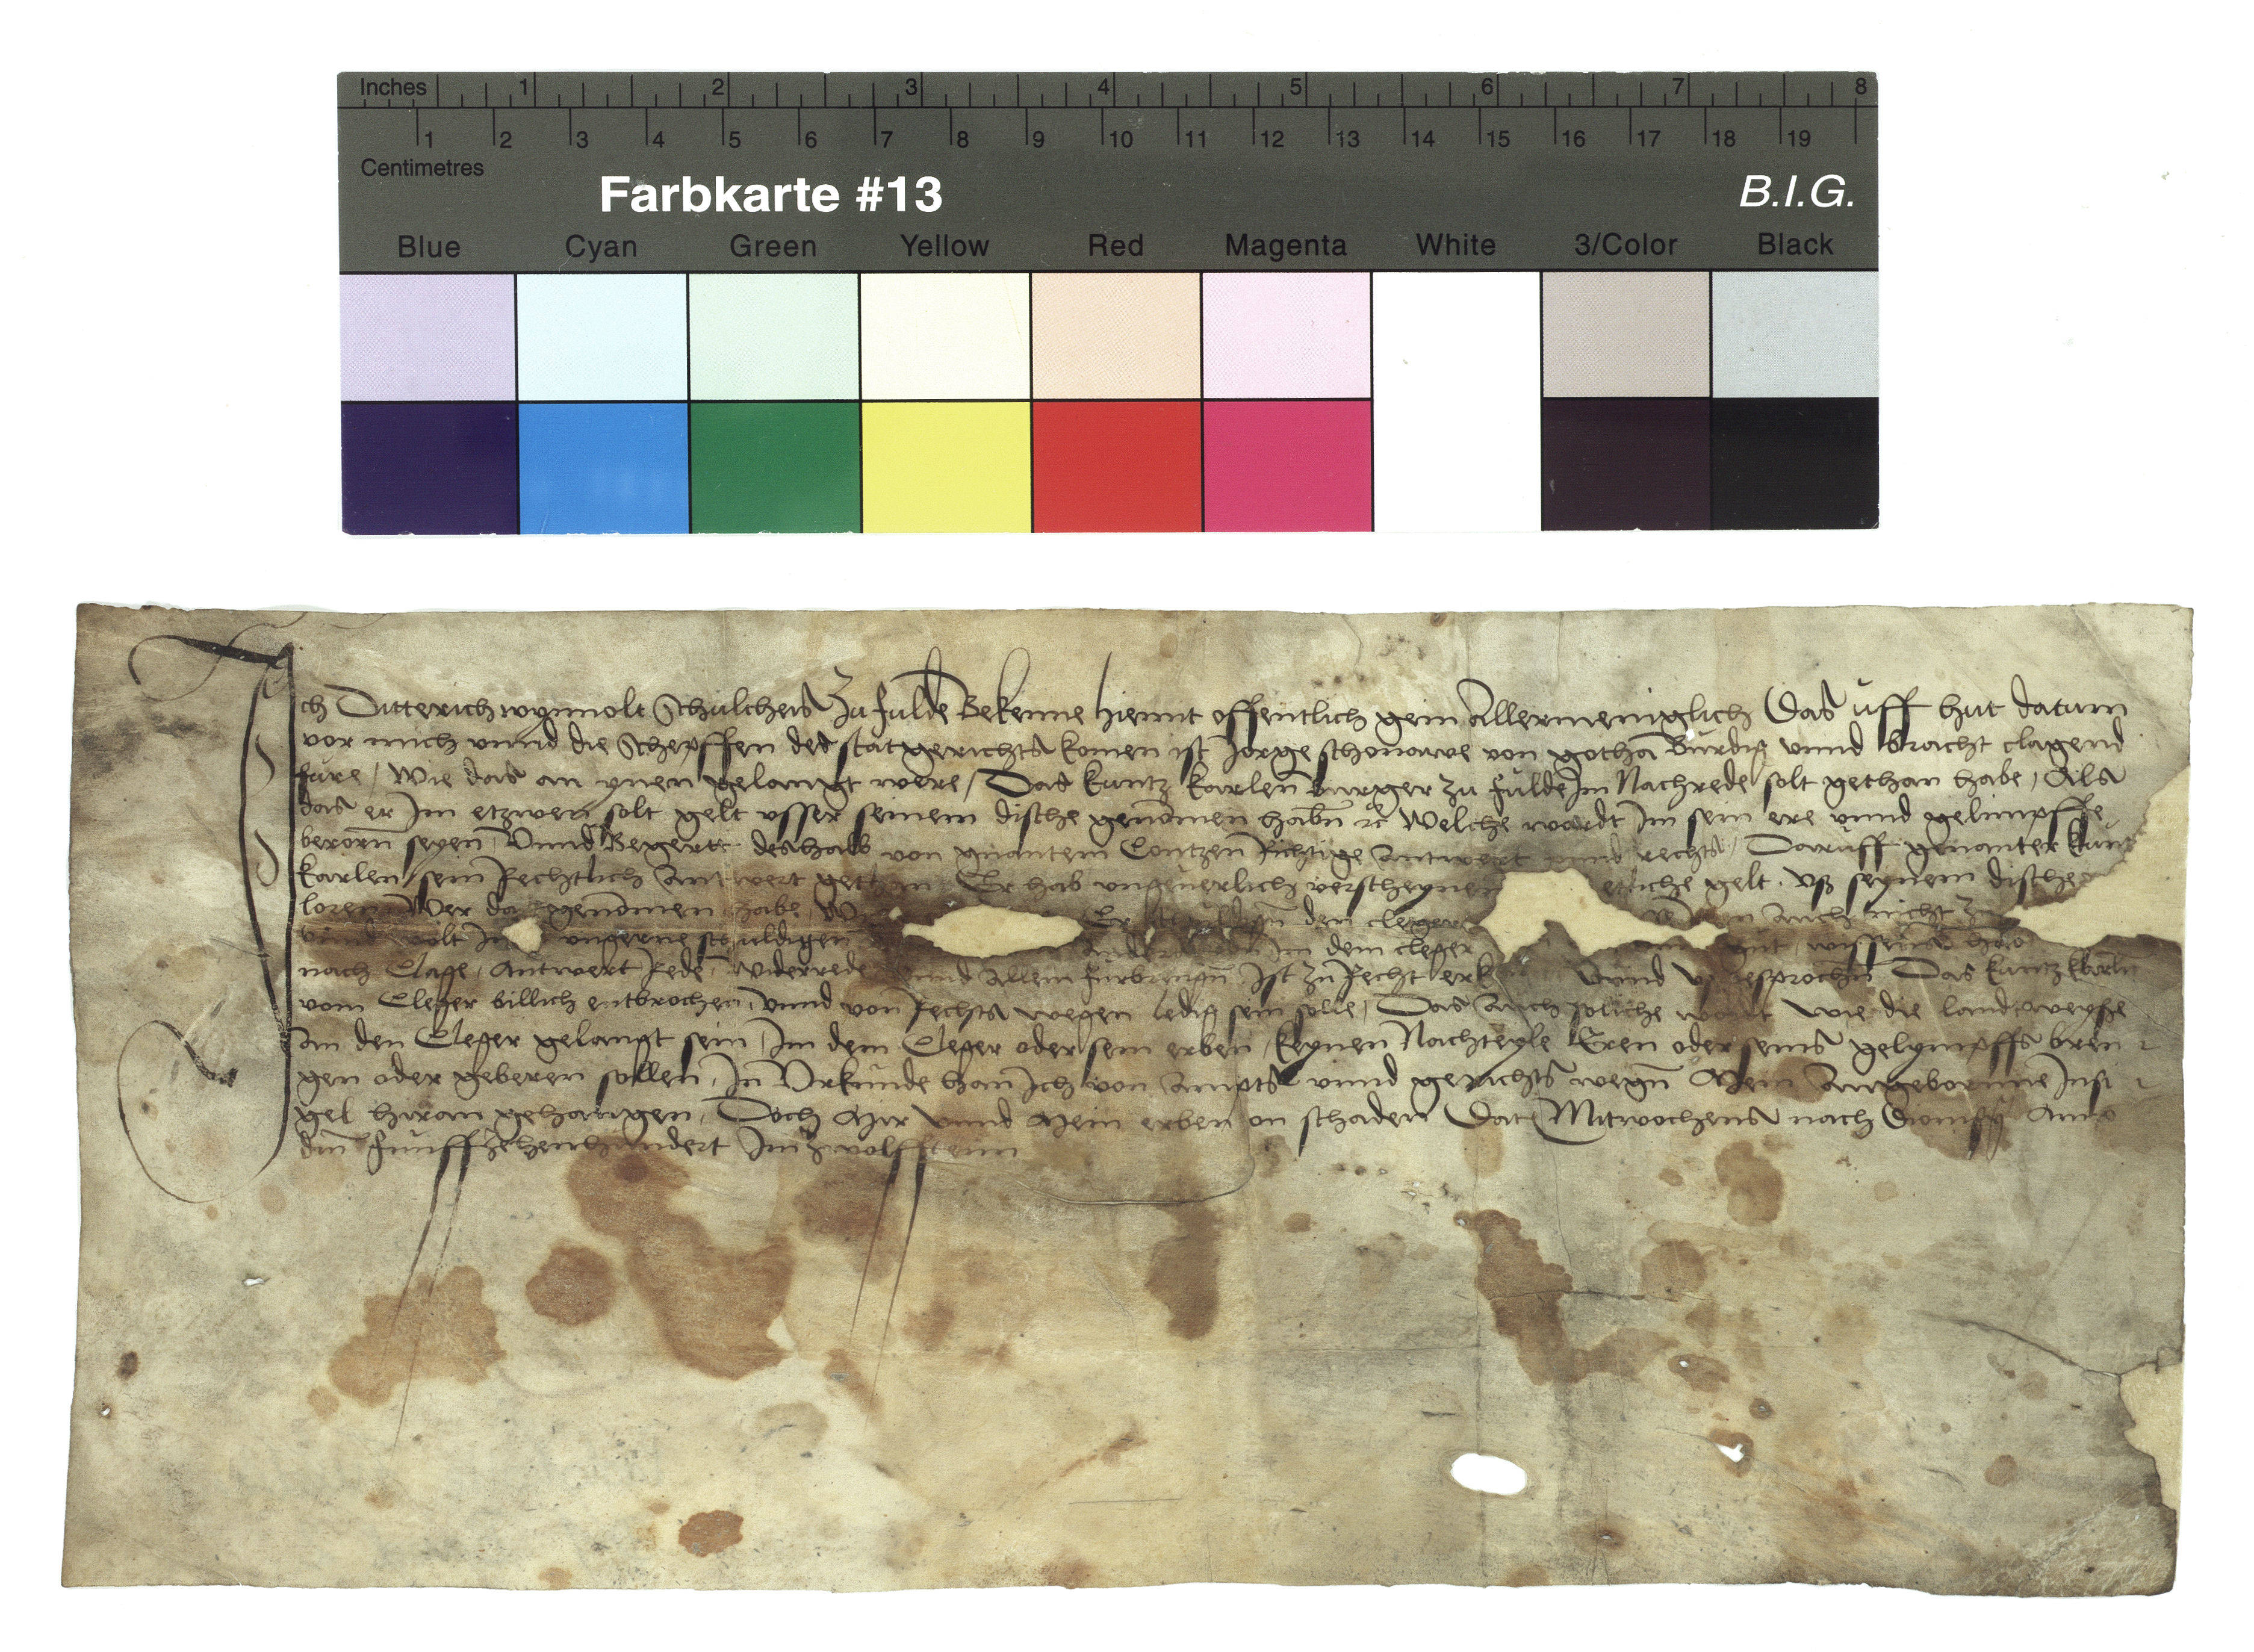 Inches 1 2 3 4 5 6 7 8
1 2 3 4 5 6 7 8 9 10 11 12 13 14 15 16 17 18 19
Centimetres
Farbkarte #13 B.I.G.
Blue Cyan Green Yellow Red Magenta White 3/Color Black
Ich Ditterich wynnolt Schulcheis Zu fulde Bekenne hiemit offentlich gein Allermeniglich Das uff hut datum
vor mich vnnd die Schepffen des statgerichts komen ist Jorge schonawe von gotha Burdig vnnd bracht clagend
fure / Wie das an ynen gelangt were / Das kuntz karlen burger zu fulde Im Nachrede solt gethan habe / Als
das er Im etzwen solt gelt vsser seinem dische genomen habn̄ ꝛc Welche wordt Im sein ere vnnd gelimpffe
berorn seyen / Vnnd Begert deshalb von gnantem Contzen Richtige Antwert vnnd rechts / Daruff gnanter
karlen sein Rechtlich Antwert gethan Er hab vngeuerlich verscheynen etliche gelt vß seynem dische
loren Wer da genomen habe den cleger auch nicht zu
vnnd wolt In vngerne schuldigen Im dem cleger
nach Clage / Antwert Rede / Widerrede vnnd allem furbringn̄ Ist zu Recht vnnd Das kuntz karln
vom Cleger billich entbrochen / vnnd von Rechts wegen ledig sein solle / Das auch soliche wort wie die
An den Cleger gelangt sein / Im dem Cleger oder sein erben / keynen Nachteyle Eren oder seins gelympffs bren
gen oder geberen sollen / In Vrkunde han Ich von Ampts vnnd gerichts wegn̄ Mein Angebornne Insi
gel hiran gehangen / Doch Mir vnnd Mein erben on schaden Dat Mitwochens nach Dionisy Anno
dm̄ funffzehenhundert Im zwolfftenn